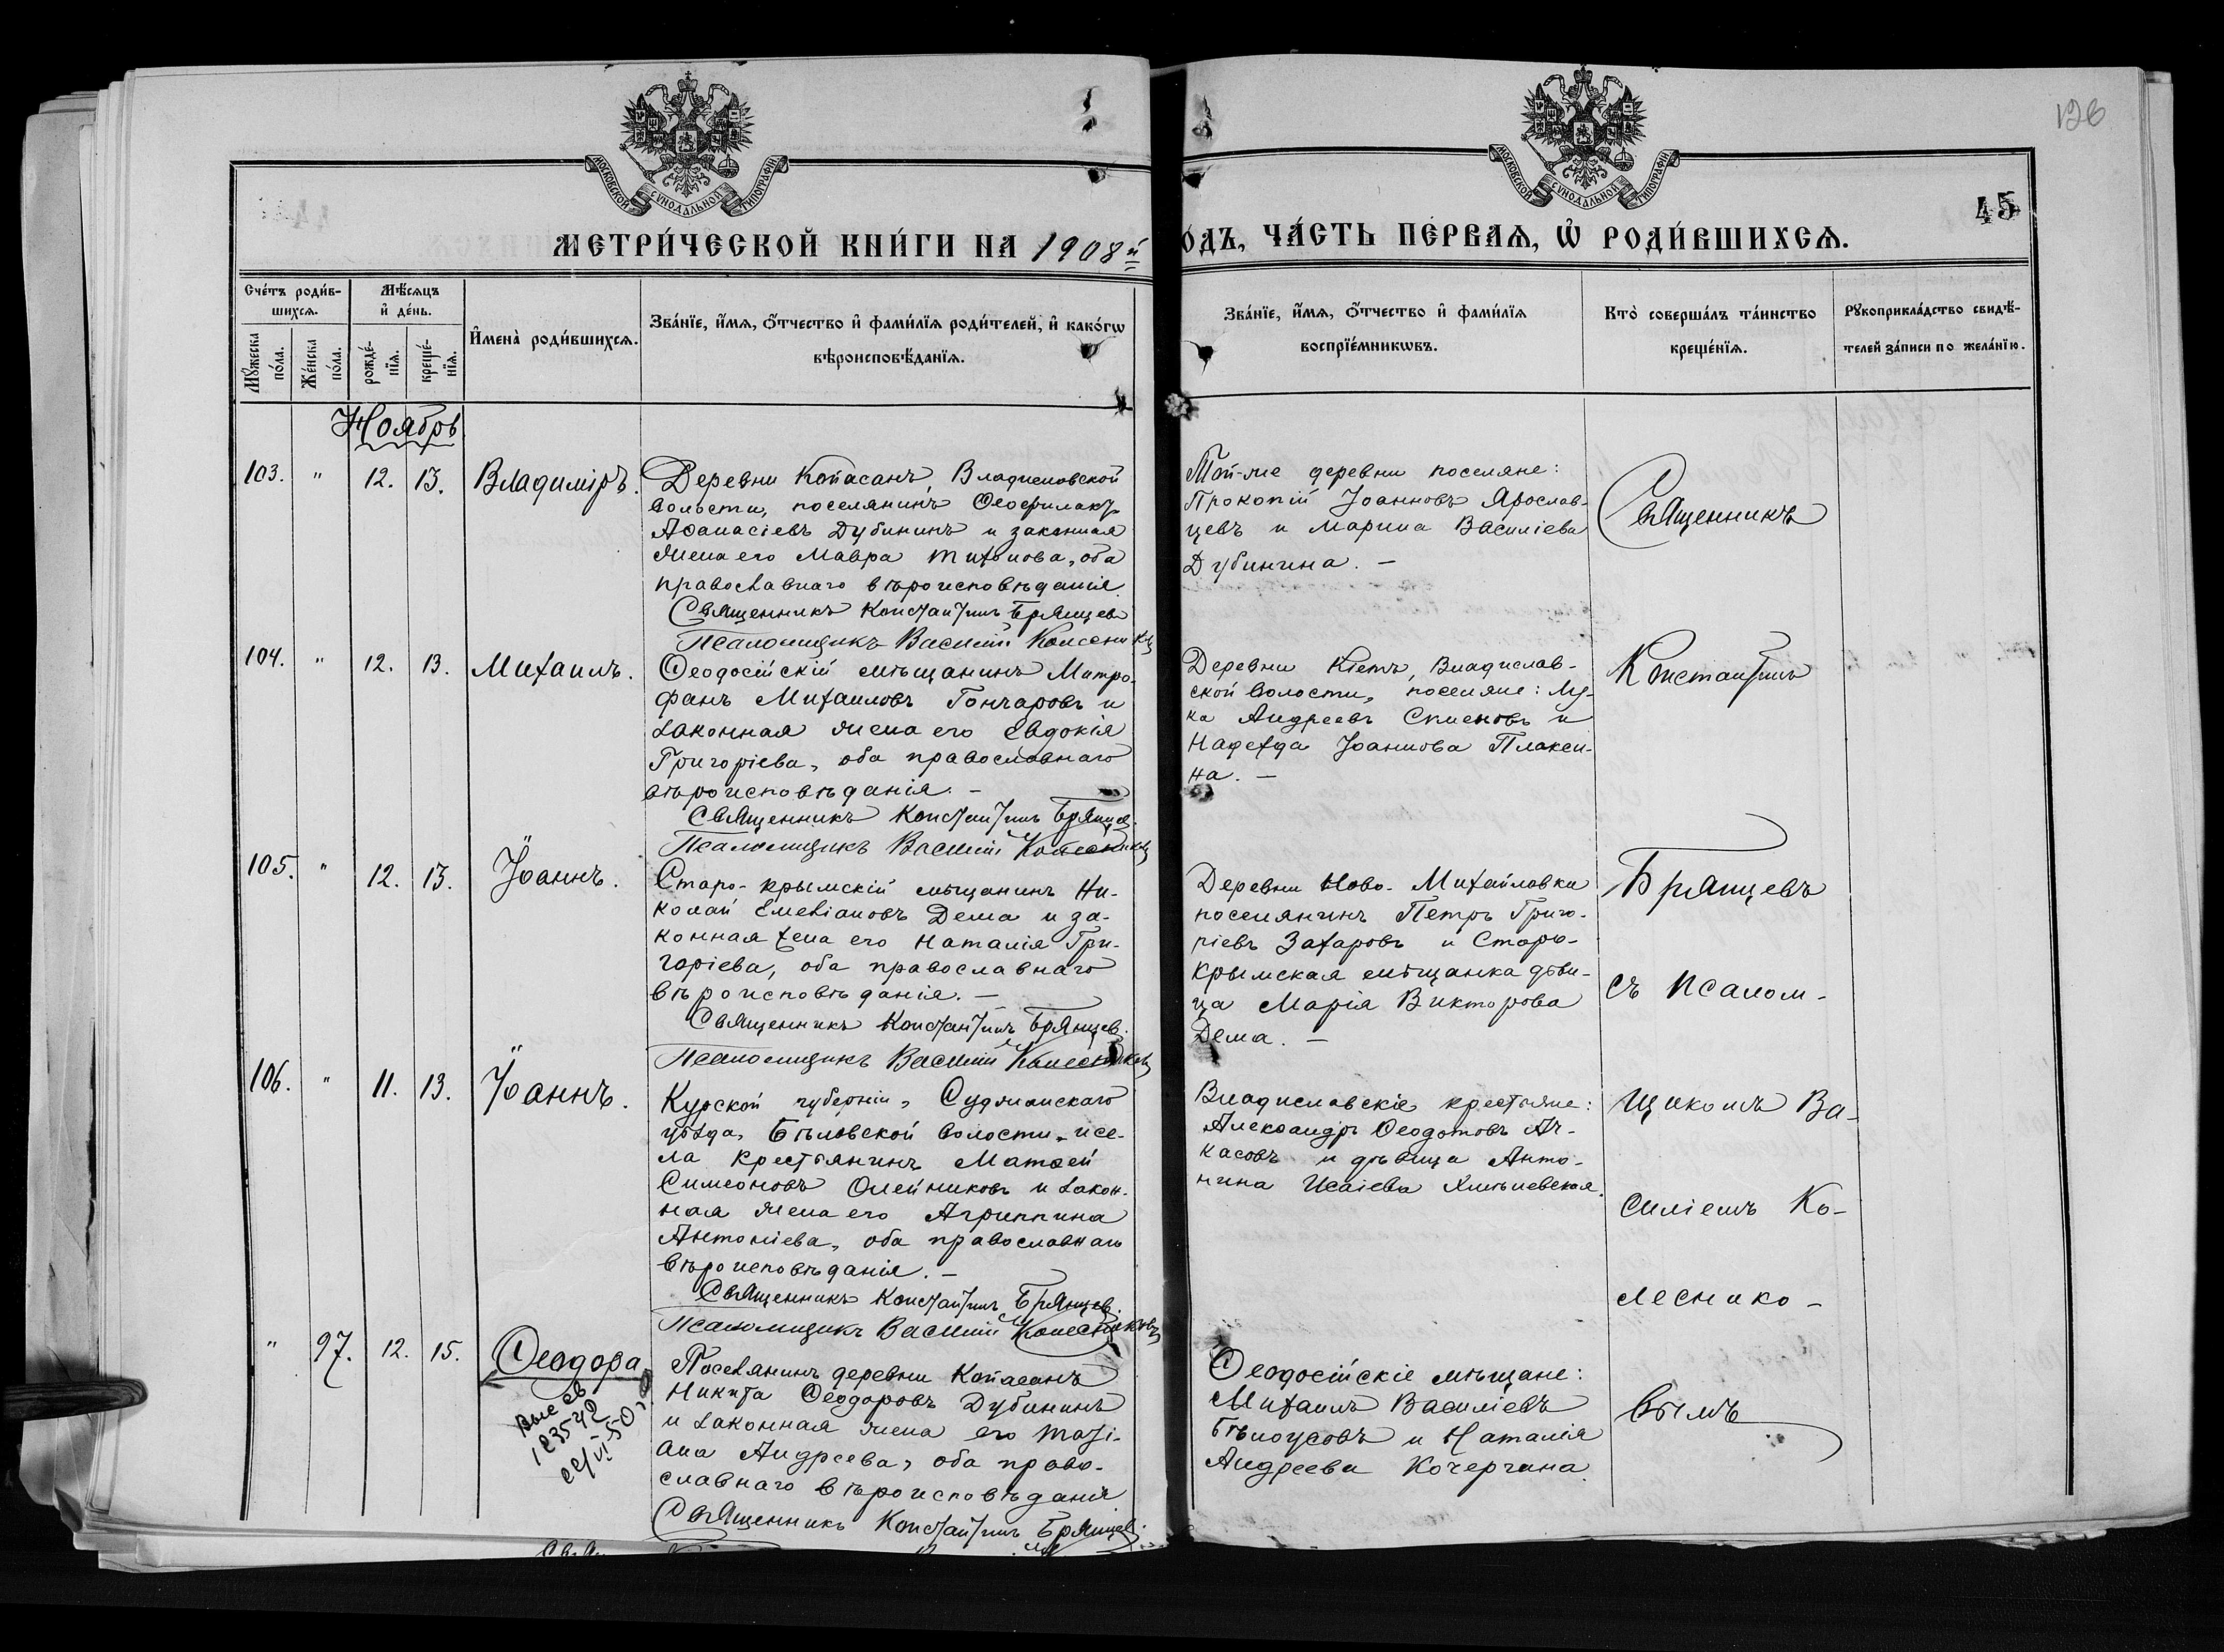 126
45
МОСКОВСКОЙ СѴНОДАЛЬНОЙ ТИПОГРАФІИ
МОСКОВСКОЙ СѴНОДАЛЬНОЙ ТИПОГРАФІИ
МЕТРИ́ЧЕСКОЙ КНИ́ГИ НА 1908й
ОДЪ, ЧА́СТЬ ПЕ́РВАѦ, Ѡ҆ РОДИ́ВШИХСѦ.
Сче́тъ роди́в-
шихсѧ.
Мꙋ́жеска по́ла.
Же́нска по́ла.
Мѣ́сѧцъ
и҆ де́нь.
рожде́-нїѧ.
креще́-нїѧ.
И҆мена̀ роди́вшихсѧ.
Зва́нїе, и҆́мѧ, ѻ҆́тчество и҆ фами́лїѧ роди́телей, и҆ како́гѡ
вѣроисповѣ́данїѧ.
Зва́нїе, и҆́мѧ, ѻ҆́тчество и҆ фами́лїѧ
воспрїе́мникѡвъ.
Кто̀ соверша́лъ та́инство
креще́нїѧ.
Рꙋкоприкла́дство свидѣ́-
телей за́писи по жела́нїю.
Ноябрь
103. " 12. 13. Владиміръ.
Деревни Копасанъ, Владиславской
волости, поселянинъ Ѳеофилактъ
Аѳанасіевъ Дубининъ и законная
жена его Мавра Тихонова, оба
православнаго вѣроисповѣданія.
Священникъ Константинъ Брянцевъ
Псаломщикъ Василій Колесниковъ
Той-же деревни поселяне:
Прокопій Іоанновъ Ярослав-
цевъ и Марина Василіева
Дубинина. —
Священникъ
104. " 12. 13. Михаилъ.
Ѳеодосійскій мѣщанинъ Митро-
фанъ Михаиловъ Гончаровъ и
законная жена его Евдокія
Григоріева, оба православнаго
вѣроисповѣданія. —
Священникъ Константинъ Брянцев.
Псаломщикъ Василій Колесниковъ
Деревни Кіетъ, Владислав-
ской волости, поселяне: Лу-
ка Андреевъ и
Надежда Іоаннова Плакси-
на. —
Константинъ
105. " 12. 13. Іоаннъ.
Старо-крымскій мѣщанинъ Ни-
колай Емеліановъ Дема и за-
конная жена его Наталія Гри-
горіева, оба православнаго
вѣроисповѣданія. —
Священникъ Константинъ Брянцев.
Псаломщикъ Василій Колесниковъ
Деревни Ново-Михайловки
поселянинъ Петръ Григо-
ріевъ Захаровъ и Старо-
крымская мѣщанка дѣви-
ца Марія Викторова
Дема. —
Брянцевъ
съ псалом-
106. " 11. 13. Іоаннъ.
Курской губерніи, Суджанскаго
уѣзда, Бѣловской волости и се-
ла крестьянинъ Матѳей
Симеоновъ Олейниковъ и закон-
ная жена его Агриппина
Антоніева, оба православнаго
вѣроисповѣданія. —
Священникъ Константинъ Брянцев.
Псаломщикъ Василій Колесниковъ
Владиславскіе крестьяне:
Александръ Ѳеодотовъ Ач-
касовъ и дѣвица Анто-
нина Исаіева Хмѣлевская.
щикомъ Ва-
силіемъ Ко-
леснико-
" 97. 12. 15. Ѳеодора
183542
Поселянинъ деревни Копасанъ
Никита Ѳеодоровъ Дубининъ
и законная жена его Таті-
ана Андреева, оба право-
славнаго вѣроисповѣданія
Священникъ Константинъ Брянцев.
Ѳеодосійскіе мѣщане:
Михаилъ Василіевъ
Бѣлоусовъ и Наталія
Андреева Кочергина.
вымъ